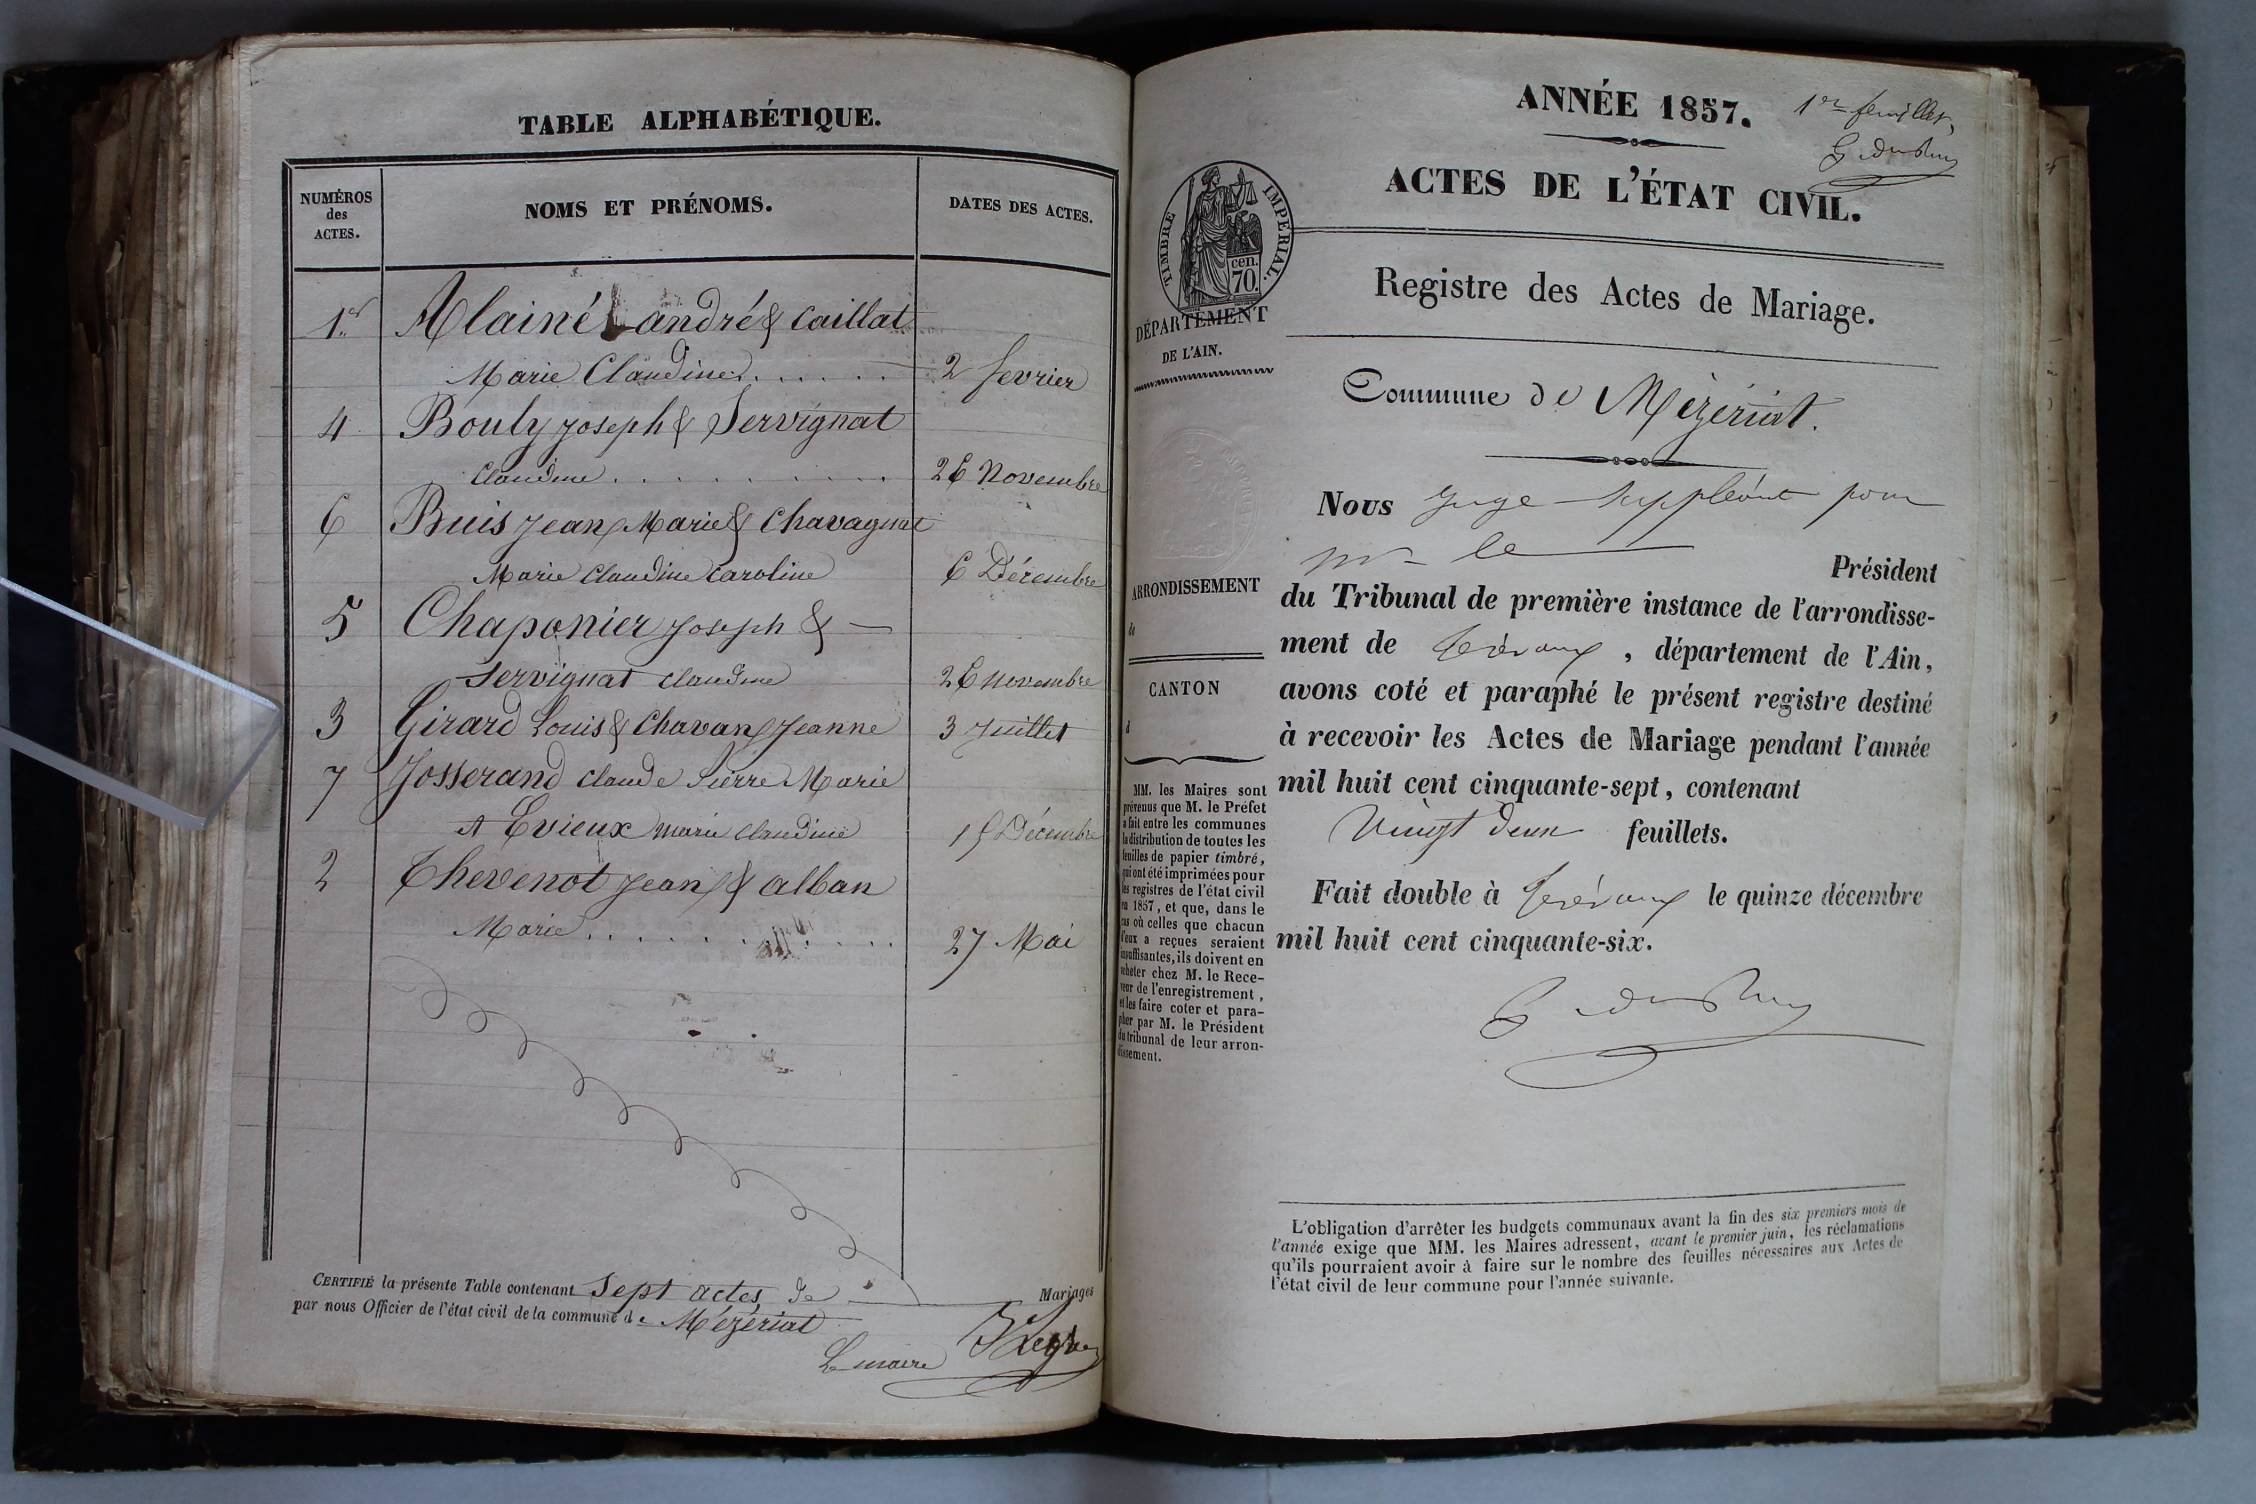 TABLE ALPHABÉTIQUE.
NUMÉROS
des
ACTES.
NOMS ET PRÉNOMS.
DATES DES ACTES.
1er Alainé Landré & Caillat
Marie Claudine . . . . . . 2 fevrier
4 Bouly Joseph & Servignat
Claudine . . . . . . . . . . 26 Novembre
6 Buis Jean Marie & Chavagnat
Marie Claudine Caroline 6 Décembre
5 Chaponier Joseph & —
Servignat Claudine 26 novembre
3 Girard Louis & Chavan Jeanne 3 Juillet
7 Josserand Claude Pierre Marie
et Evieux Marie Claudine 15 Décembre
2 Thevenot Jean & alban
Marie . . . . . . . . . . . 27 Mai
CERTIFIÉ la présente Table contenant Sept actes de Mariages
par nous Officier de l'état civil de la commune de Mézériat
Le maire
1er feuillet,
ANNÉE 1857.
ACTES DE L'ÉTAT CIVIL.
TIMBRE IMPÉRIAL.
cen.
70.
DÉPARTEMENT
DE L'AIN.
Registre des Actes de Mariage.
Commune de Mézériat.
Nous Juge suppléant pour
Mr le Président
du Tribunal de première instance de l'arrondisse-
ment de Trévoux, département de l'Ain,
avons coté et paraphé le présent registre destiné
à recevoir les Actes de Mariage pendant l'année
mil huit cent cinquante-sept, contenant
Vingt deux feuillets.
Fait double à Trévoux le quinze décembre
mil huit cent cinquante-six.
ARRONDISSEMENT
de
CANTON
d
MM. les Maires sont
prévenus que M. le Préfet
a fait entre les communes
la distribution de toutes les
feuilles de papier timbré,
qui ont été imprimées pour
les registres de l'état civil
en 1857, et que, dans le
cas où celles que chacun
d'eux a reçues seraient
insuffisantes, ils doivent en
acheter chez M. le Rece-
veur de l'enregistrement,
et les faire coter et para-
pher par M. le Président
du tribunal de leur arron-
dissement.
L'obligation d'arrêter les budgets communaux avant la fin des six premiers mois de
l'année exige que MM. les Maires adressent, avant le premier juin, les réclamations
qu'ils pourraient avoir à faire sur le nombre des feuilles nécessaires aux Actes de
l'état civil de leur commune pour l'année suivante.